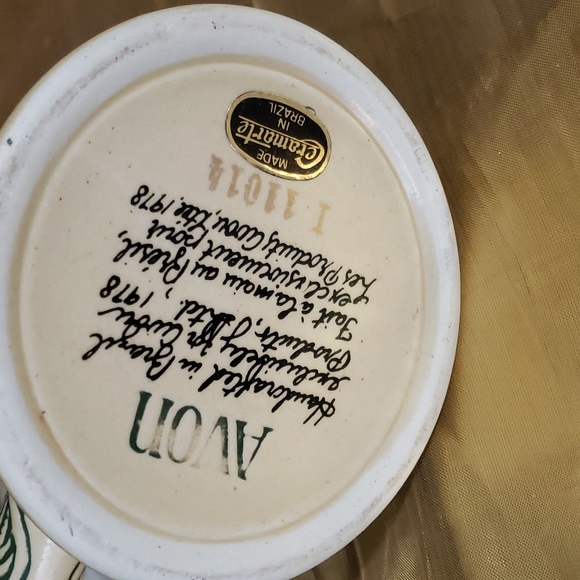 AVON
Handcrafted in Brazil
exclusively for Avon
Products, Ltd., 1978
Fait à la main au Brésil,
exclusivement pour
les Produits Avon, Ltée. 1978
I 11014
MADE
Ceramarte
IN
BRAZIL